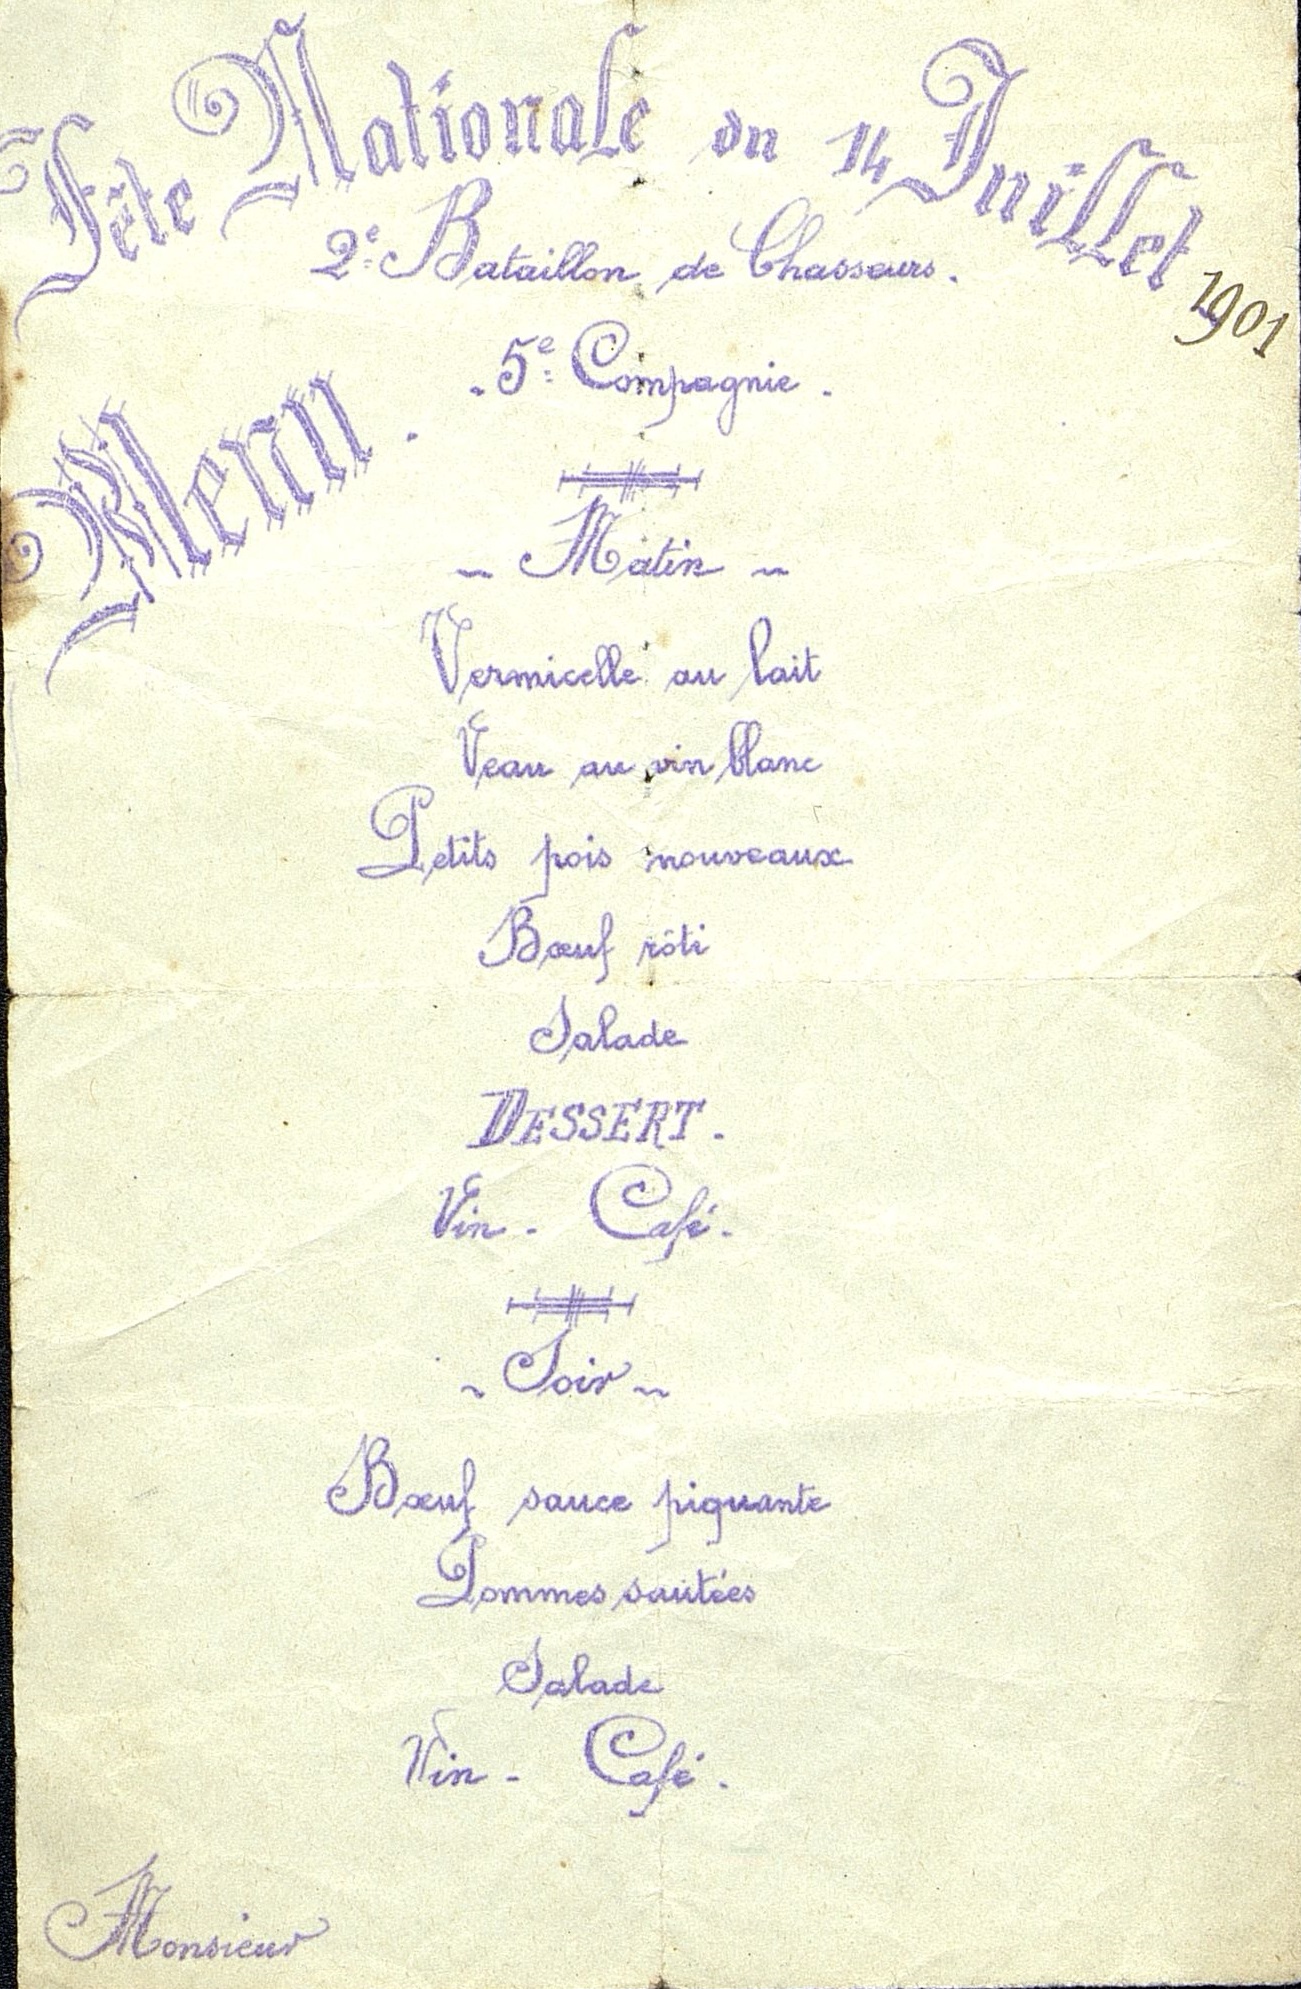 Fête Nationale du 14 Juillet
1901
2e Bataillon de Chasseurs.
- 5e Compagnie.
Menu.
~ Matin ~
Vermicelle au lait
Veau au vin blanc
Petits pois nouveaux
Bœuf rôti
Salade
DESSERT.
Vin - Café.
~ Soir ~
Bœuf sauce piquante
Pommes sautées
Salade
Vin - Café.
Monsieur